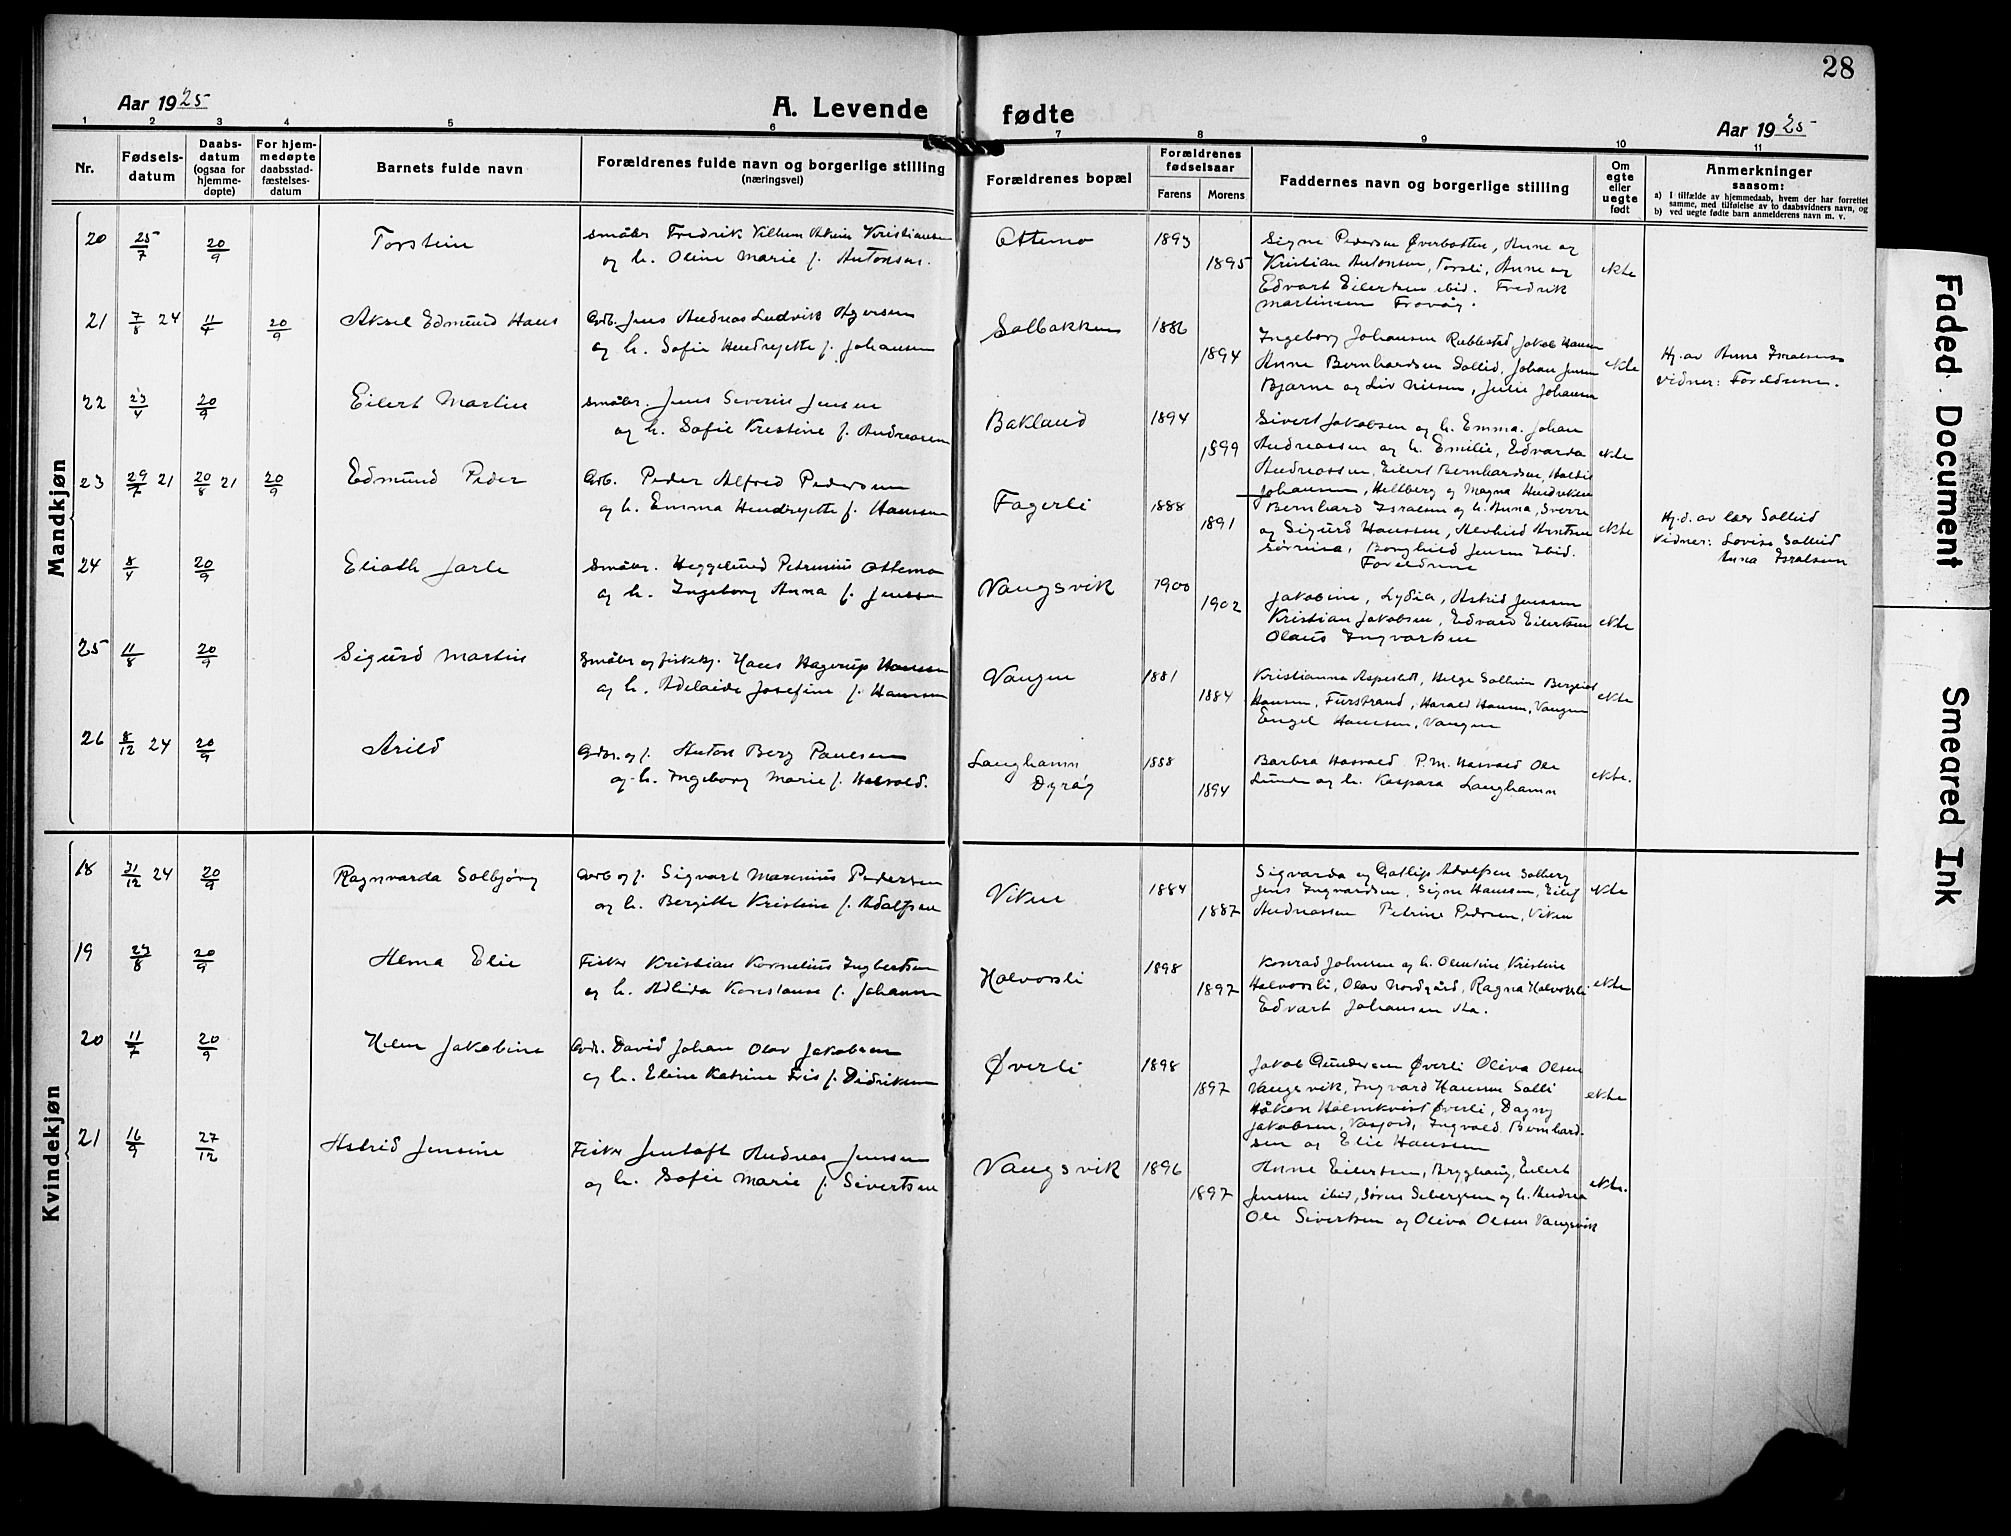 28
Aar 1925
A. Levende fødte
Aar 1925
1 2 3 4 5 6 7 8 9 10 11
Nr.
Fødsels-
datum
Daabs-
datum
(ogsaa for
hjemme-
døpte)
For hjem-
medøpte
daabsstad-
fæstelses-
datum
Barnets fulde navn
Forældrenes fulde navn og borgerlige stilling
(næringsvei)
Forældrenes bopæl
Forældrenes
fødselsaar
Farens Morens
Faddernes navn og borgerlige stilling
Om
egte
eller
uegte
født
Anmerkninger
saasom:
a) I tilfælde av hjemmedaab, hvem der har forrettet
samme, med tilføielse av to daabsvidners navn, og
b) ved uegte fødte barn anmelderens navn m. v.
Mandkjøn
20 25/7 20/9 Torstein
småbr. Fredrik Vilhem Kristiansen
og h. Oline Marie f. Antonsen.
Ottemo 1893 1895
Signe Pedersen Øverbotten, Anne og
Kristian Antonsen, Torsli, Anne og
Edvart Eilertsen ibid. Fredrik
Martinsen Frovåg.
ekte
21 7/8 24 11/4 20/9 Aksel Edmund Hans
Arb. Jens Andreas Ludvik
og h. Sofie Hendrejette f. Johansen
Solbakken 1886 1894
Ingeborg Johansen Jakob Hansen
Anne Bernhardsen Sollid, Johan Jensen
Bjarne og Liv Nilsen, Julie Johansen
ekte
Hj. av Anna Isralsen
Vidner: Foreldrene.
22 23/4 20/9 Eilert Martin
Småbr. Jens Severin Jensen
og h. Sofie Kristine f. Andreassen
Bakland 1894 1899
Sivert Jakobsen og h. Emma. Johan
Andreassen og h. Emilie, Edvarda
Andreassen, Eilert Bernhardsen,
Johansen, Hellberg og Magna Hendriksen
ekte
23 29/7 21 20/8 21 20/9 Edmund Peder
Arb. Peder Alfred Pedersen
og h. Emma Hendrejette f. Hanssen
Fagerli 1888 1891
Bernhard Isralsen og h. Anna, Sverre
og Sigurd Hanssen, Arntsen
Sørreisa, Borghild Jensen Ibid.
Foreldrene
ekte
Hj.d. av lær Sollid
Vidner: Lovise Sollid
Anna Isralsen
24 8/4 20/9 Eliath Jarle
Småbr. Heggelund Petrenius Ottemo
og h. Ingeborg Anna f. Jenssen
Vangsvik 1900 1902
Jakobine, Lydia, Astrid Jenssen
Kristian Jakobsen, Edvard Eilertsen
Olaus Ingvartsen
ekte
25 11/8 20/9 Sigurd Martin
Småbr og fiskekj. Hans Hagerup Hanssen
og h. Adelaide Josefine f. Hansen
Vangen 1881 1884
Kristianna Aspeslett, Helge Solheim
Hansen, Furstrand, Harald Hansen, Vangen
Engel Hanssen, Vangen
ekte
26 8/12 24 20/9 Arild
Gdbr. og f. Anton Berg Paulsen
og h. Ingeborg Marie f. Hasvold.
Langhamn
Dyrøy
1888 1894
Barbra Hasvold P.M. Hasvold Ole
Lunde og h. Kaspara Langhamn
ekte.
Kvindekjøn
18 31/12 24 20/9 Ragnvarda Solbjørg
Arb og f. Sigvart Marenius Pedersen
og h. Bergitte Kristine f. Adolfsen
Viken 1884 1887
Sigvarda og Gotlip Adolfsen Solberg
Jens Ingvardsen, Signe Hanssen, Eilif
Andreassen Petrine Pedersen, Viken
ekte
19 23/8 20/9 Alma Elie
Fisker Kristian Kornelius Ingbertsen
og h. Adlida Konstanse f. Johansen
Halvorsli 1898 1897
Konrad Johnsen og h. Olentine, Kristine
Halvorsli, Olav Nordgård, Ragna Halvorsli
Edvart Johansen sta.
ekte
20 11/7 20/9 Helen Jakobine
Arb. David Johan Olav Jakobsen
og h. Eline Katrine Fris f. Didriksen
Øverli 1898 1897
Jakob Gundersen Øverli Oliva Olsen
Vangsvik, Ingvard Hansen Solli
Håkon Holmkvist Øverli, Dagny
Jakobsen, Vasjord, Ingvald Bernhard-
sen og Elie Hanssen
ekte
21 16/9 27/12 Astrid Jensine
Fisker Jentoft Andreas Jenssen
og h. Sofie Marie f. Sivertsen
Vangsvik 1896 1897
Anne Eilertsen, Brygghaug, Eilert
Jenssen ibid, Søren Sebergsen og h. Andrea
Ole Sivertsen og Oliva Olsen Vangsvik
ekte.
Faded Document
Smeared Ink